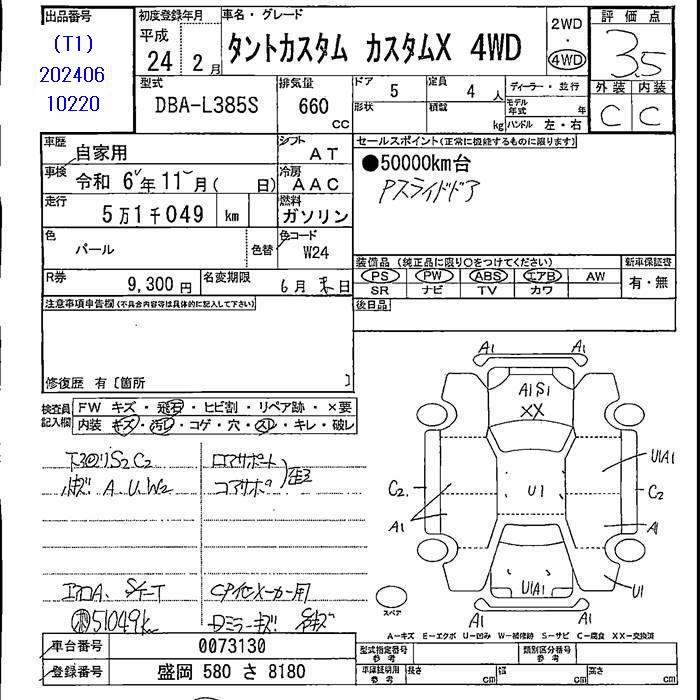 出品番号
(T1)
202406
10220
初度登録年月
平成
24 2月
車名・グレード
タントカスタム カスタムX 4WD
2WD
・
4WD
評価点
3.5
外装 内装
C C
型式
DBA-L385S
排気量
660
cc
ドア
5
定員
4人
形状
積載
kg
ディーラー・並行
モデル年式 年
ハンドル 左・右
車歴
自家用
シフト
AT
車検
令和 6年 11月( 日)
冷房
AAC
走行
5万1千049 km
燃料
ガソリン
色
パール
色替
色コード
W24
R券
9,300円
名変期限
6月末日
セールスポイント(正常に機能するものに限ります)
●50000km台
Pスライドドア
装備品 (純正品に限り○をつけてください)
PS PW ABS エアB AW
SR ナビ TV カワ
新車保証書
有・無
後日品
注意事項申告欄(不具合内容等は具体的に記入して下さい)
修復歴 有 [箇所 ]
検査員
記入欄
FW キズ・飛石・ヒビ割・リペア跡・×要
内装 キズ・汚レ・コゲ・穴・スレ・キレ・破レ
下回りS2 C2
A.U.W2
ロアサポート
コアサポ
エアロA.
51049k
CPイセメーカー用
Dミラーキズ
A1 A1
A1S1
XX
U1A1
C2 U1 C2
A1 A1
U1A1 U1
A1 A1
スペア
A-キズ E-エクボ U-凹み W-補修跡 S-サビ C-腐食 XX-交換済
車台番号
0073130
登録番号
盛岡 580 さ 8180
型式指定番号
参考
類別区分番号
参考
車庫証明用
参考
長さ cm 幅 cm 高さ cm